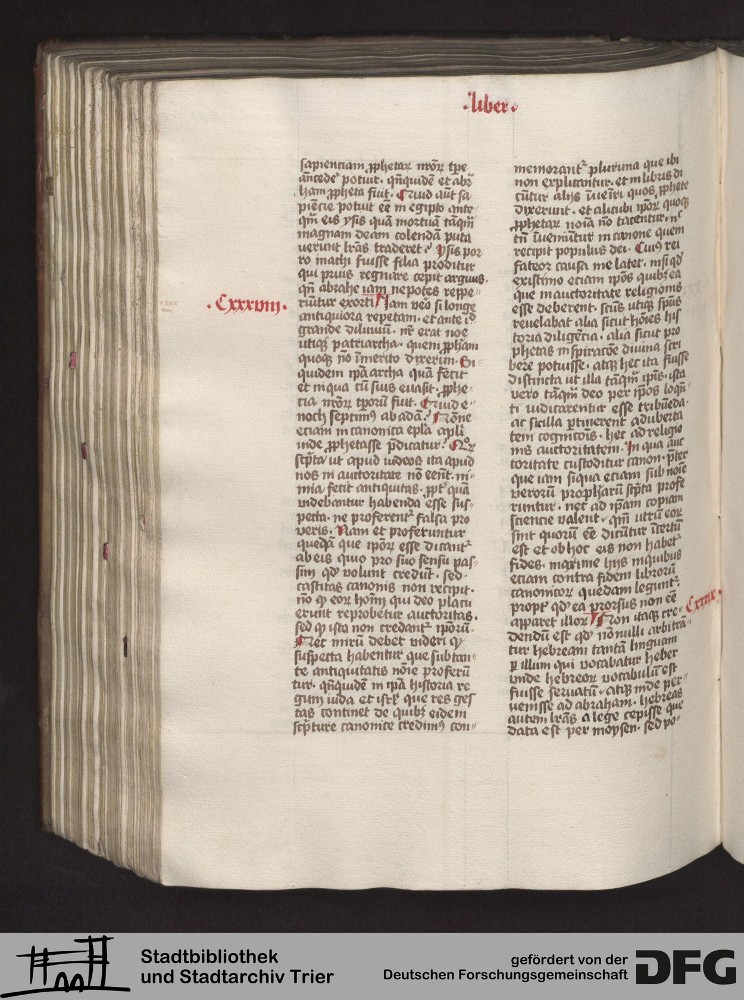 ·liber·
sapienciam ꝓphetaꝝ nr̄oꝝ tp̄e
an̄cede᷑ potuit· qn̄quidē et abr̄
ham ꝓpheta fuit· Quid aūt sa
piēcie potuit eē in egipto ante
qm̄ eis ysis quā mortuā tāqm̄
magnam deam colendā puta
verunt lr̄as traderet· ysis por
ro inachi fuisse filia proditur
qui prius regnare cepit argiuis·
qn̄ abrahe iam nepotes reppe
riūtur exorti
·Cxxxviij·
Iam ve͛o si longe
antiquiora repetam· et ante id
grande diluuiū· nr̄ erat noe
vtiqꝫ patriarcha· quem ꝓpham
quoqꝫ nō inmerito dixerim· Si
quidem ip̄a archa quā fecit
et in qua cū suis euasit· ꝓphe
cia nr̄oꝝ tꝑorū fuit· Quid e
noch septimꝰ ab adā· Nōne
eciam in canonica ep̄la apl̄i
iude ꝓphetasse p̄dicatur· Quoꝝ
scp̄ta vt apud iudeos ita apud
nos in auctoritate nō eēnt· ni
mia fecit antiquitas· ꝓpt᷑ quā
videbantur habenda esse sus
pecta· ne proferent᷑ falsa pro
veris· Nam et proferuntur
quedā que ipoꝝ esse dicant᷑
ab eis qui pro suo sensu pas
sim qd̓ volunt credūt· sed
castitas canonis non recipit·
nō ꝙ eoꝝ hoīm qui deo placu
erunt reprobetur auctoritas·
sed ꝙ ista non credant᷑ ip̄orū·
Nec mirū debet videri ꝙ
suspecta habentur que sub tan
te antiquitatis nōie proferū
tur· qn̄quidē in ip̄a historia re
gum iuda et isrl̓ que res ges
tas continet de quibꝫ eidem
scp̄ture canonice credimꝰ com
memorant᷑ plurima que ibi
non explicantur· et in libris di
cūtur alijs inueīri quos ꝓphete
dixerunt· et alicubi ip̄oꝝ quoqꝫ
ꝓphetaꝝ noīa nō tacentur· nec
tn̄ inueniūtur in canone quem
recipit populus dei· Cuiꝰ rei
fateor causa me latet· nisi qd̓
existimo eciam ip̄os quibꝫ ea
que in auctoritate religionis
esse deberent· scūs vtiqꝫ spūs
reuelabat alia sicut hoīes his
toria diligēcia· alia sicut pro
phetas inspiracōe diuina scri
bere potuisse· atqꝫ hec ita fuisse
distincta vt illa tāqm̄ ip̄is· ista
vero tāqm̄ deo per ip̄os loqn̄
ti iudicarentur esse tribuēda·
ac sic illa ꝑtinerent ad vberta
tem cognicōis· hec ad religio
nis auctoritatem· In qua auc
toritate custoditur canon· p̄ter
que iam siqua eciam sub noīe
verorū propharū scp̄ta profe
runtur· nec ad ip̄am copiam
sciencie valent· qm̄ vtrū eoꝝ
sint quorū eē dicūtur īcertū
est et ob hoc eis non habet᷑
fides· maxime hijs in quibus
eciam contra fidem librorū
canonicoꝝ quedam legunt᷑
propt᷑ qd̓ ea prorsus non eē
apparet illoꝝ
·Cxxxix·
Non itaqꝫ cre
dendū est qd̓ nōnulli arbitrā
tur hebream tantū linguam
ꝑ illum qui vocabatur heber
vnde hebreoꝝ vocabulū est
fuisse seruatū· atqꝫ inde per
uenisse ad abraham· hebreas
autem lr̄as a lege cepisse que
data est per moysen· sed po
Stadtbibliothek
und Stadtarchiv Trier
gefördert von der
Deutschen Forschungsgemeinschaft
DFG